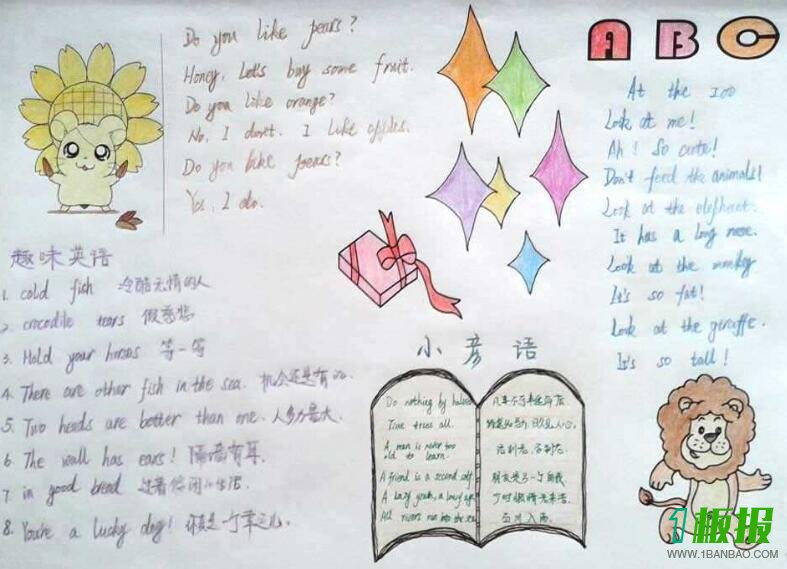 Do you like pears?
Honey, Let's buy some fruit.
Do you like orange?
No, I don't. I like apples.
Do you like pears?
Yes, I do.
ABC
At the zoo
Look at me!
Ah! So cute!
Don't feed the animals!
Look at the elephant.
It has a long nose.
Look at the monkey
It's so fat!
Look at the giraffe.
It's so tall!
趣味英语
1. cold fish 冷酷无情的人
2. crocodile tears 假慈悲
3. Hold your horses 等一等
4. There are other fish in the sea. 机会还是有的.
5. Two heads are better than one. 人多力量大.
6. The wall has ears! 隔墙有耳.
7. in good bread 过着悠闲的生活
8. You're a lucky dog! 你真是一个幸运儿.
小彦语
Do nothing by halves
Time tries all.
A man is never too
old to learn.
A friend is a second self
A lazy youth, a lousy age
All rivers run into the sea
凡事不可半途而废
路遥知马力，日久见人心。
活到老，学到老。
朋友是另一个自我
少时懒惰老来
百川入海
1板报
WWW.1BANBAO.COM